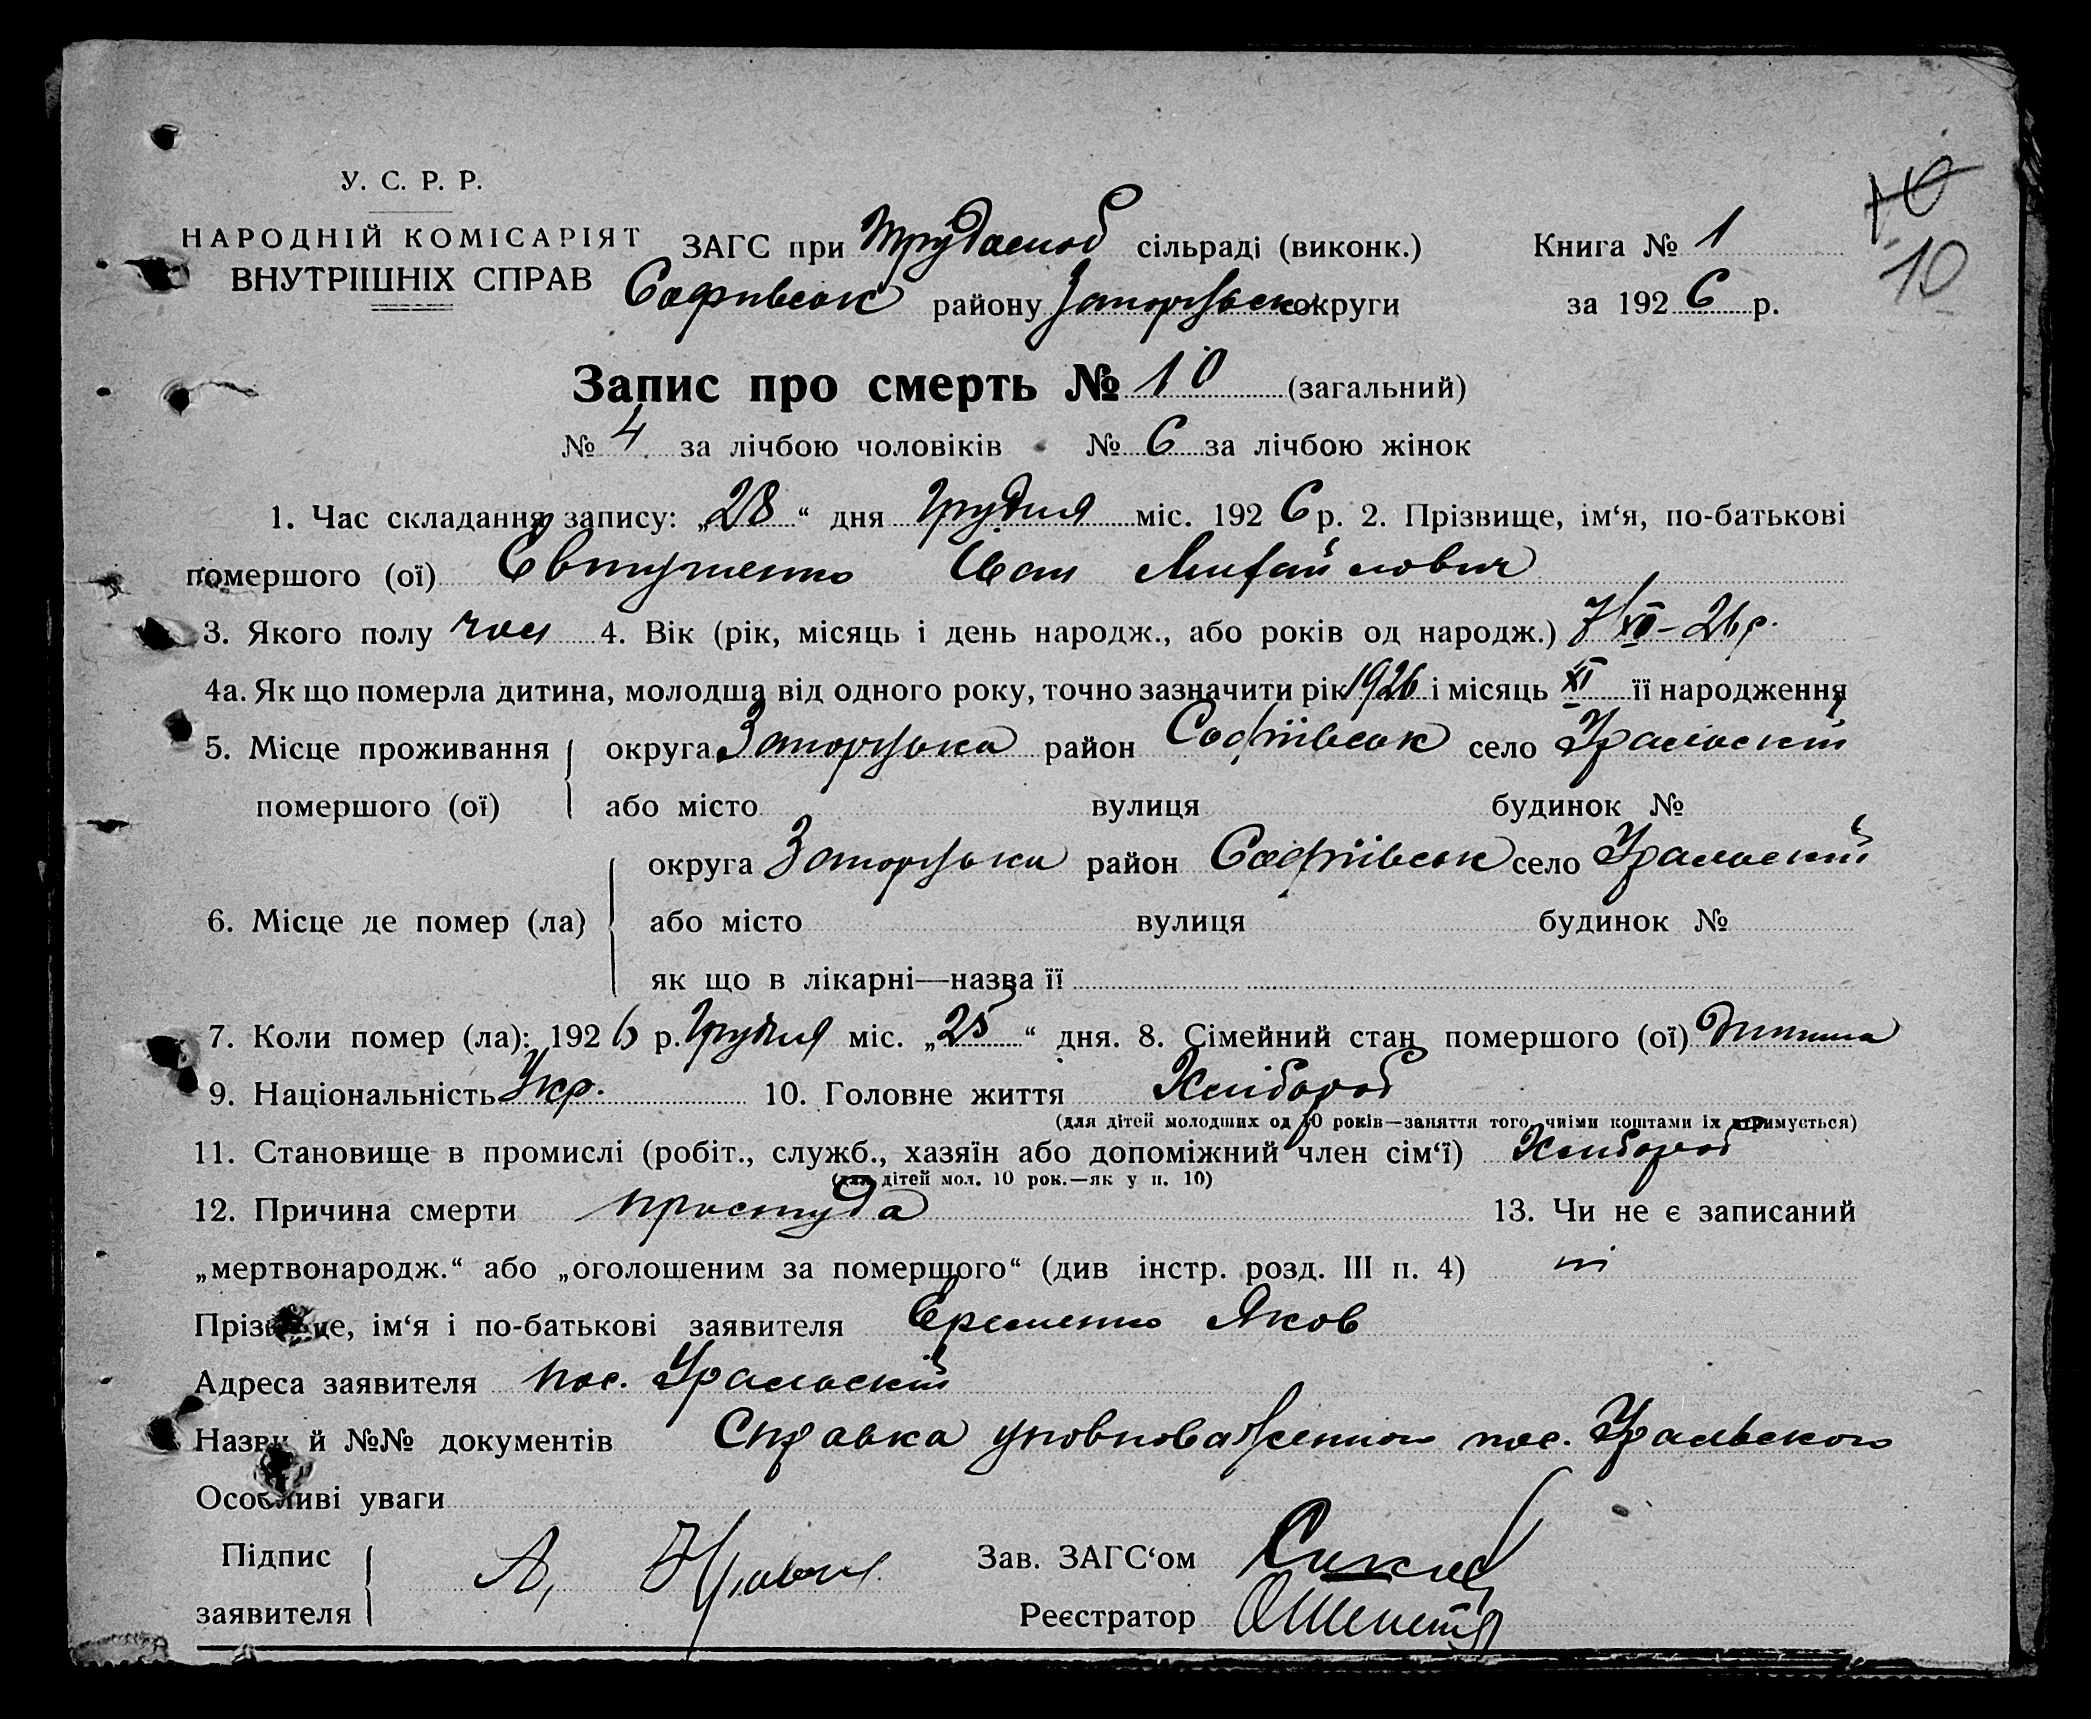 У. С. Р. Р.
НАРОДНІЙ КОМІСАРІЯТ
ВНУТРІШНІХ СПРАВ
ЗАГС при сільраді (виконк.)
Софіївськ району Запорізьк округи
Книга № 1
за 1926 р.
10
10
Запис про смерть № 10 (загальний)
№ 4 за лічбою чоловіків № 6 за лічбою жінок
1. Час складання запису: „28“ дня Грудня міс. 1926 р. 2. Прізвище, ім‘я, по-батькові
помершого (ої) Євтушенко Іван Михайлович
3. Якого полу чол 4. Вік (рік, місяць і день народж., або років од народж.) 7/XII-26р.
4а. Як що померла дитина, молодша від одного року, точно зазначити рік 1926 і місяць XI її народження
5. Місце проживання округа Запорізька район Софіївськ село Уральский
помершого (ої) або місто вулиця будинок №
округа Запорізька район Софіївськ село Уральский
6. Місце де помер (ла) або місто вулиця будинок №
як що в лікарні—назва її
7. Коли помер (ла): 1926 р. Грудня міс. „25“ дня. 8. Сімейний стан помершого (ої) Дитина
9. Національність Укр. 10. Головне життя Хлібороб
(для дітей молодших од 10 років—заняття того, чиїми коштами їх втримується)
11. Становище в промислі (робіт., служб., хазяїн або допоміжний член сім‘ї) Хлибороб
(для дітей мол. 10 рок.—як у п. 10)
12. Причина смерти простуда 13. Чи не є записаний
„мертвонародж.“ або „оголошеним за померщого“ (див інстр. розд. III п. 4) ні
Прізвище, ім‘я і по-батькові заявителя Єременко Яков
Адреса заявителя пос. Уральский
Назви й №№ документів Справка уповноваженного пос. Уральского
Особливі уваги
Підпис заявителя Зав. ЗАГС‘ом
Реєстратор